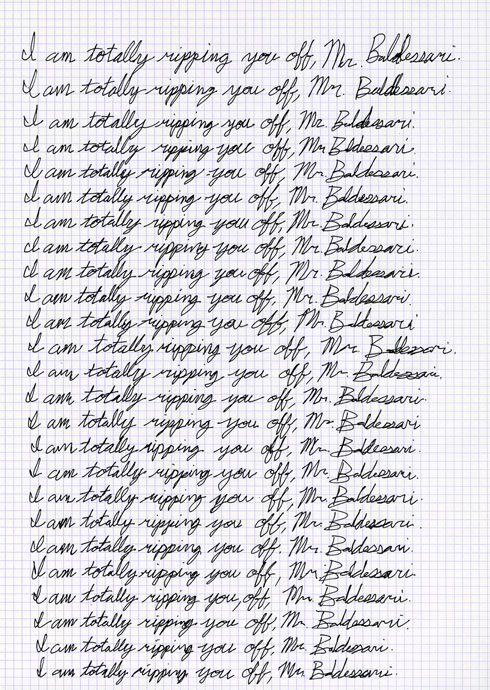 I am totally ripping you off, Mr. Baldessari.
I am totally ripping you off, Mr. Baldessari.
I am totally ripping you off, Mr. Baldessari.
I am totally ripping you off, Mr. Baldessari.
I am totally ripping you off, Mr. Baldessari.
I am totally ripping you off, Mr. Baldessari.
I am totally ripping you off, Mr. Baldessari.
I am totally ripping you off, Mr. Baldessari.
I am totally ripping you off, Mr. Baldessari.
I am totally ripping you off, Mr. Baldessari.
I am totally ripping you off, Mr. Baldessari
I am totally ripping you off, Mr. Baldessari.
I am totally ripping you off, Mr. Baldessari.
I am totally ripping you off, Mr. Baldessari.
I am totally ripping you off, Mr. Baldessari
I am totally ripping you off, Mr. Baldessari.
I am totally ripping you off, Mr. Baldessari.
I am totally ripping you off, Mr. Baldessari.
I am totally ripping you off, Mr. Baldessari.
I am totally ripping you off, Mr. Baldessari.
I am totally ripping you off, Mr. Baldessari.
I am totally ripping you off, Mr. Baldessari.
I am totally ripping you off, Mr. Baldessari.
I am totally ripping you off, Mr. Baldessari.
I am totally ripping you off, Mr. Baldessari.